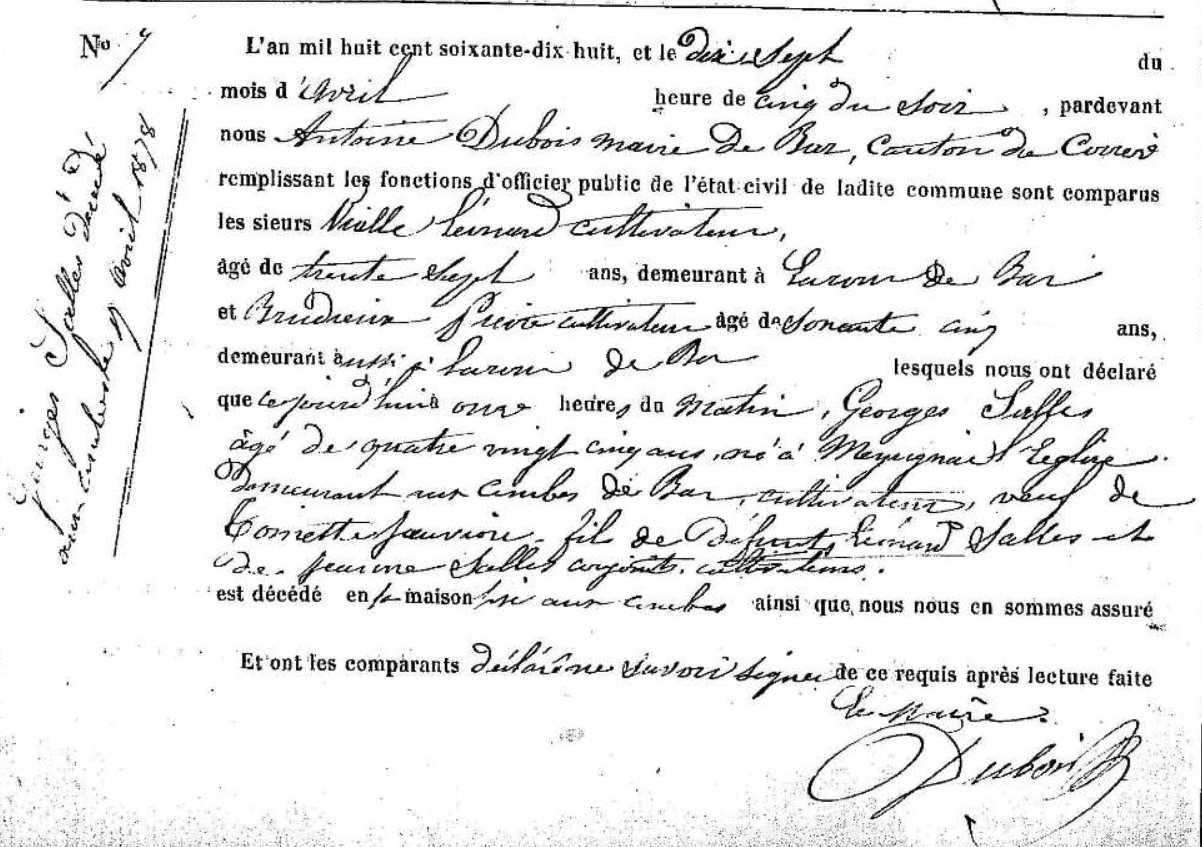 No 7
L'an mil huit cent soixante-dix huit, et le dix Sept du
mois d'avril heure de cinq du soir, pardevant
nous Antoine Dubois maire de Bar, Canton de Corrèze
remplissant les fonctions d'officier public de l'état civil de ladite commune sont comparus
les sieurs Vialle Léonard cultivateur,
âgé de trente Sept ans, demeurant à de Bar
et Pierre cultivateur âgé de soixante cinq ans,
demeurant à aussi à de Bar lesquels nous ont déclaré
que cejourd'hui à onze heures du matin, Georges Salles
âgé de quatre vingt cinq ans, né à Meyrignac l'Eglise.
Demeurant aux combes de Bar, cultivateur, veuf de
Toinette, fils de Défunts Léonard Salles et
de Jeanne Salles conjoints, cultivateurs.
est décédé en sa maison sise aux combes ainsi que nous nous en sommes assuré
Et ont les comparants déclaré ne savoir signer de ce requis après lecture faite
Le Maire
Dubois
Georges Salles décédé
aux 17 avril 1878